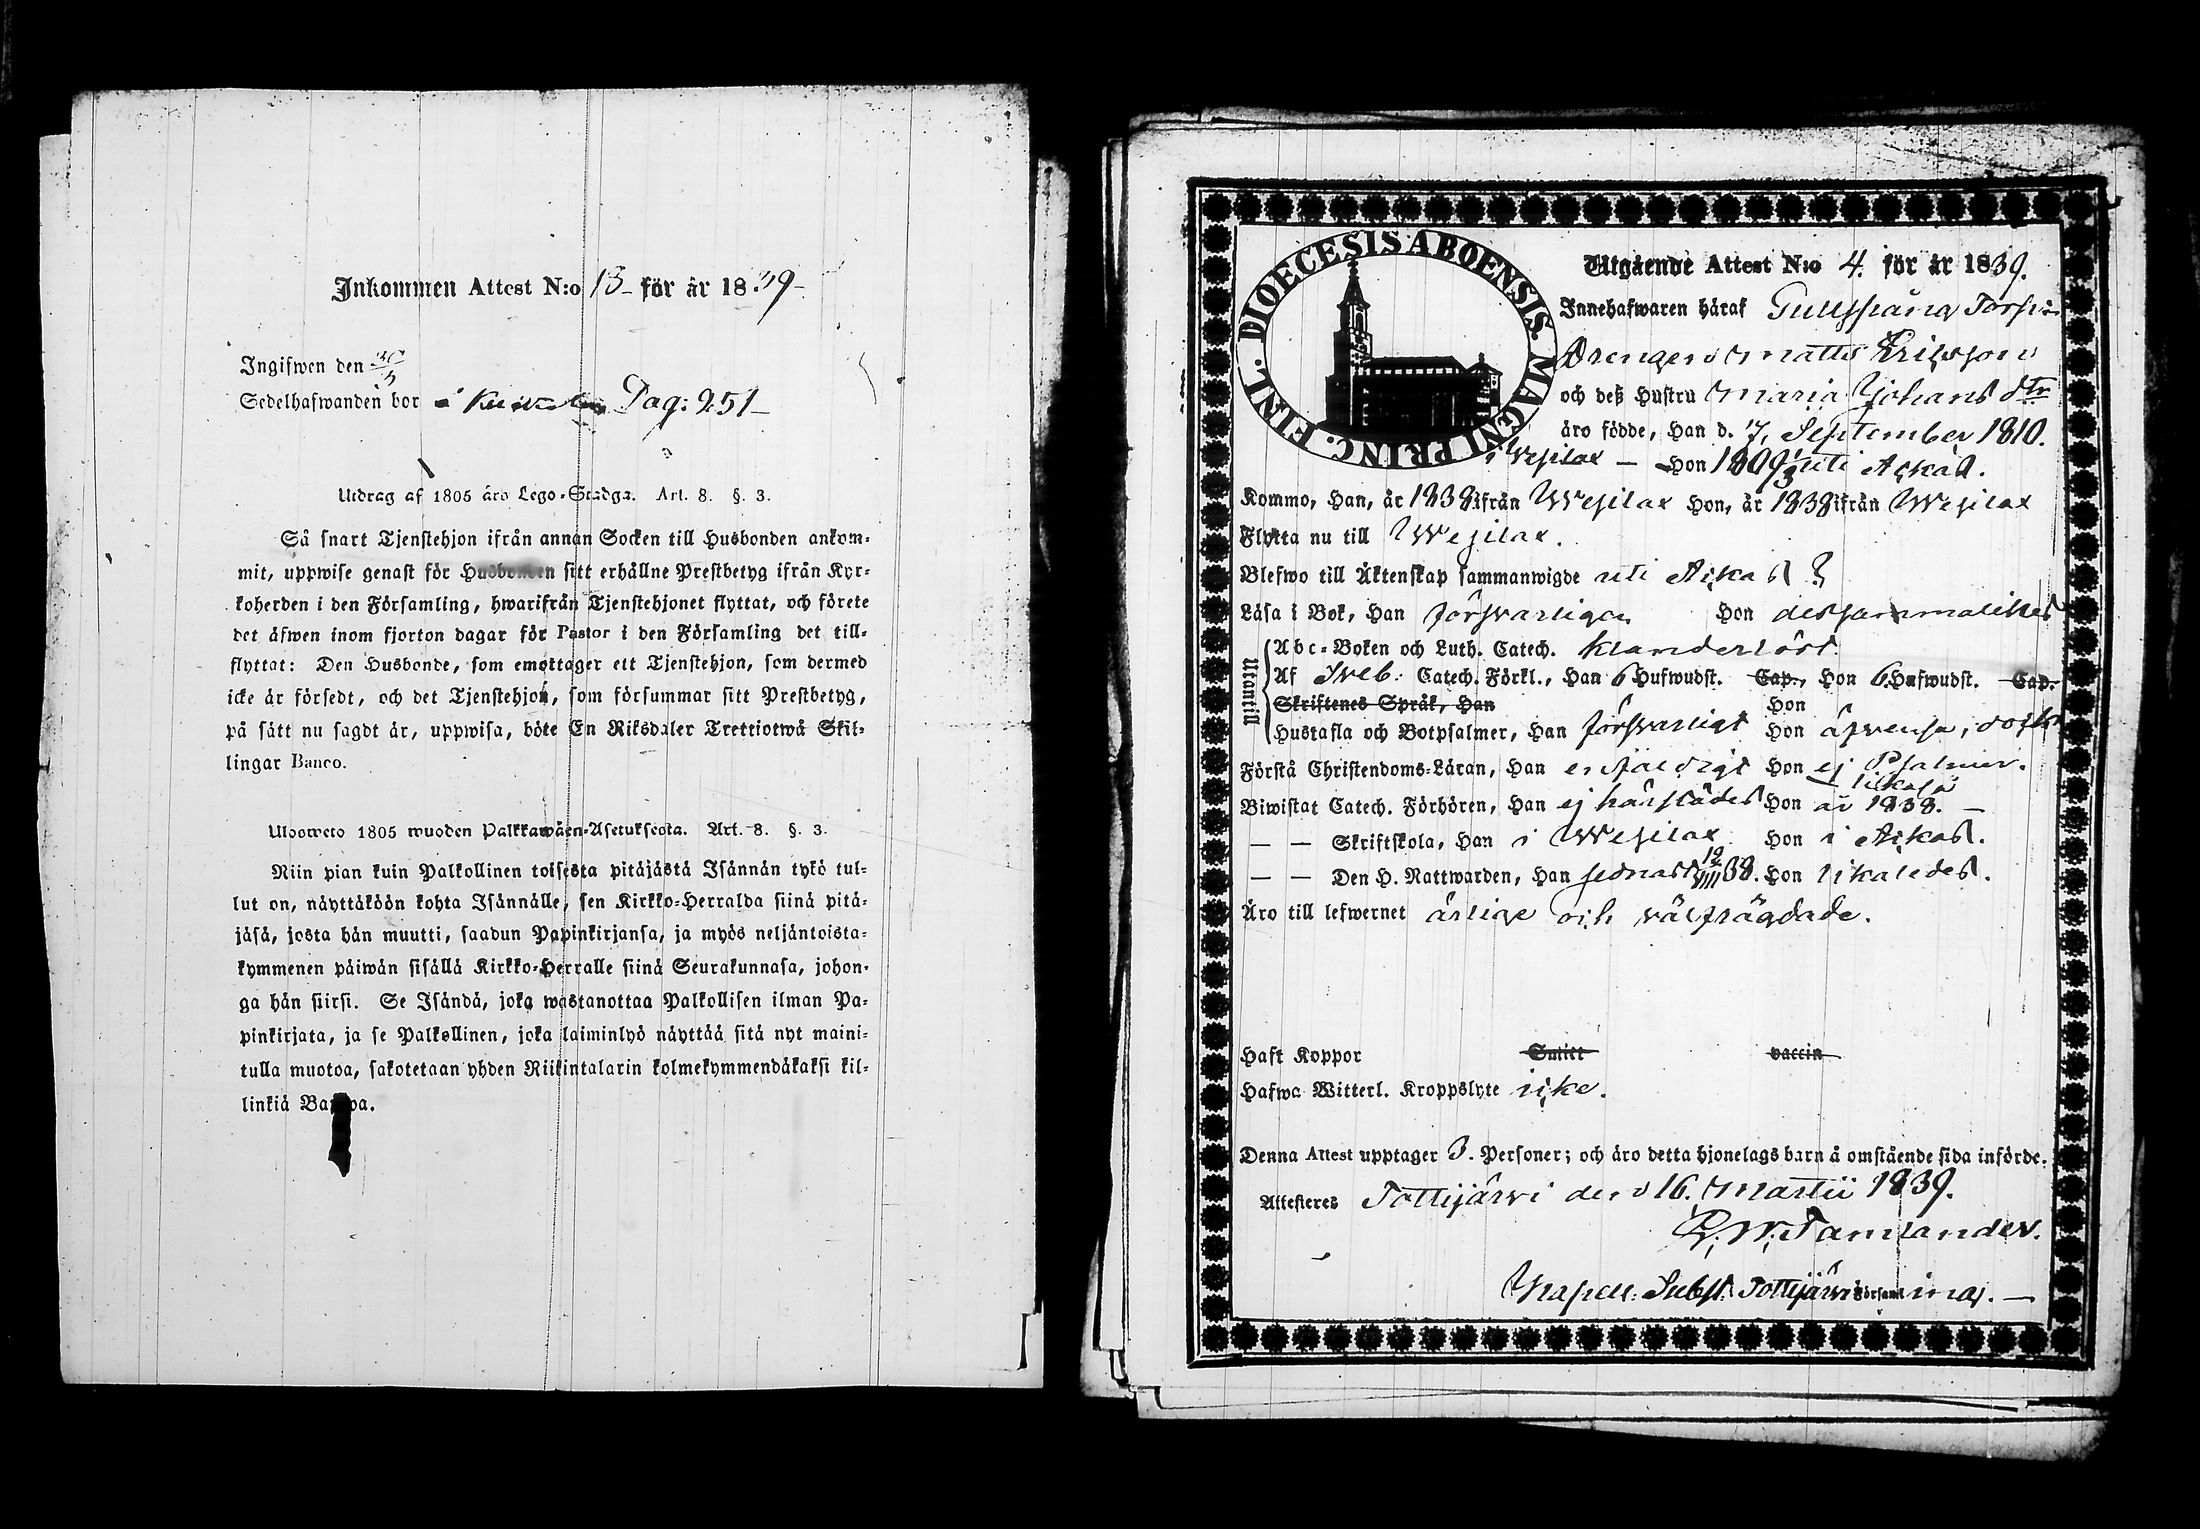 Inkommen Attest N:o 13 för år 1839
Ingifwen den 30/3
Sedelhafwanden bor i Pag: 251
Utdrag af 1805 års Lego-Stadga. Art. 8. §. 3.
Så snart Tjenstehjon ifrån annan Socken till Husbonden ankom-
mit, uppwise genast för Husbonden sitt erhållne Prestbetyg ifrån Kyr-
koherden i den Församling, hwarifrån Tjenstehjonet flyttat, och förete
det äfwen inom fjorton dagar för Pastor i den Församling det till-
flyttat: Den Husbonde, som emottager ett Tjenstehjon, som dermed
icke är försedt, och det Tjenstehjon, som försummar sitt Prestbetyg,
på sätt nu sagdt är, uppwisa, böte En Riksdaler Trettiotwå Skil-
lingar Banco.
Uloosweto 1805 wuoden Palkkawäen-Asetuksesta. Art. 8. §. 3.
Niin pian kuin Palkollinen toisesta pitäjästä Isännän tykö tul-
lut on, näyttäköön kohta Isännälle, sen Kirkko-Herralda siinä pitä-
jäsä, josta hän muutti, saadun Papinkirjansa, ja myös neljäntoista-
kymmenen päiwän sisällä Kirkko-Herralle siinä Seurakunnasa, johon-
ga hän siirsi. Se Isändä, joka wastanottaa Palkollisen ilman Pa-
pinkirjata, ja se Palkollinen, joka laiminlyö näyttää sitä nyt maini-
tulla muotoa, sakotetaan yhden Riikintalarin kolmekymmendäkaksi kil-
linkiä Bankoa.
DIOECESIS ABOENSIS. MAGNI PRINC. FINL.
Utgående Attest N:o 4. för år 1839.
Innehafwaren häraf
Drengen Matts Eriksson
och deß Hustru Maria Johans dtr
äro födde, Han d. 7. September 1810.
i Wesilax — Hon 1809 1/3 uti Ackas.
Kommo, Han, år 1838 ifrån Wesilax Hon, år 1838 ifrån Wesilax
Flytta nu till Wesilax.
Blefwo till Äktenskap sammanwigde uti Ackas
Läsa i Bok, Han försvarligen Hon dessammalikes
Utantill
Abc-Boken och Luth. Catech. klanderlöst.
Af Sveb: Catech. Förkl., Han 6 Hufwudst. Cap., Hon 6. Hufwudst. Cap.
Skriftenes Språk, Han Hon
Hustafla och Botpsalmer, Han försvarligt Hon äfvenså, dock
Förstå Christendoms-Läran, Han enfäldigt Hon ej Psalmer.
likaså
Biwistat Catech. Förhören, Han ej härstädes Hon år 1838. —
— — Skriftskola, Han i Wesilax Hon i Ackas.
— — Den H. Nattwarden, Han sednast 19/VIII 38. Hon likaledes.
Äro till lefwernet ärlige och välfrägdade.
Haft Koppor vaccin
Hafwa Witterl. Kroppslyte icke.
Denna Attest upptager 3. Personer; och äro detta hjonelags barn å omstående sida införde.
Attesteres Tottijärvi den 16. Martii 1839.
Kapell: Subst. Tottijärvi Församling. —